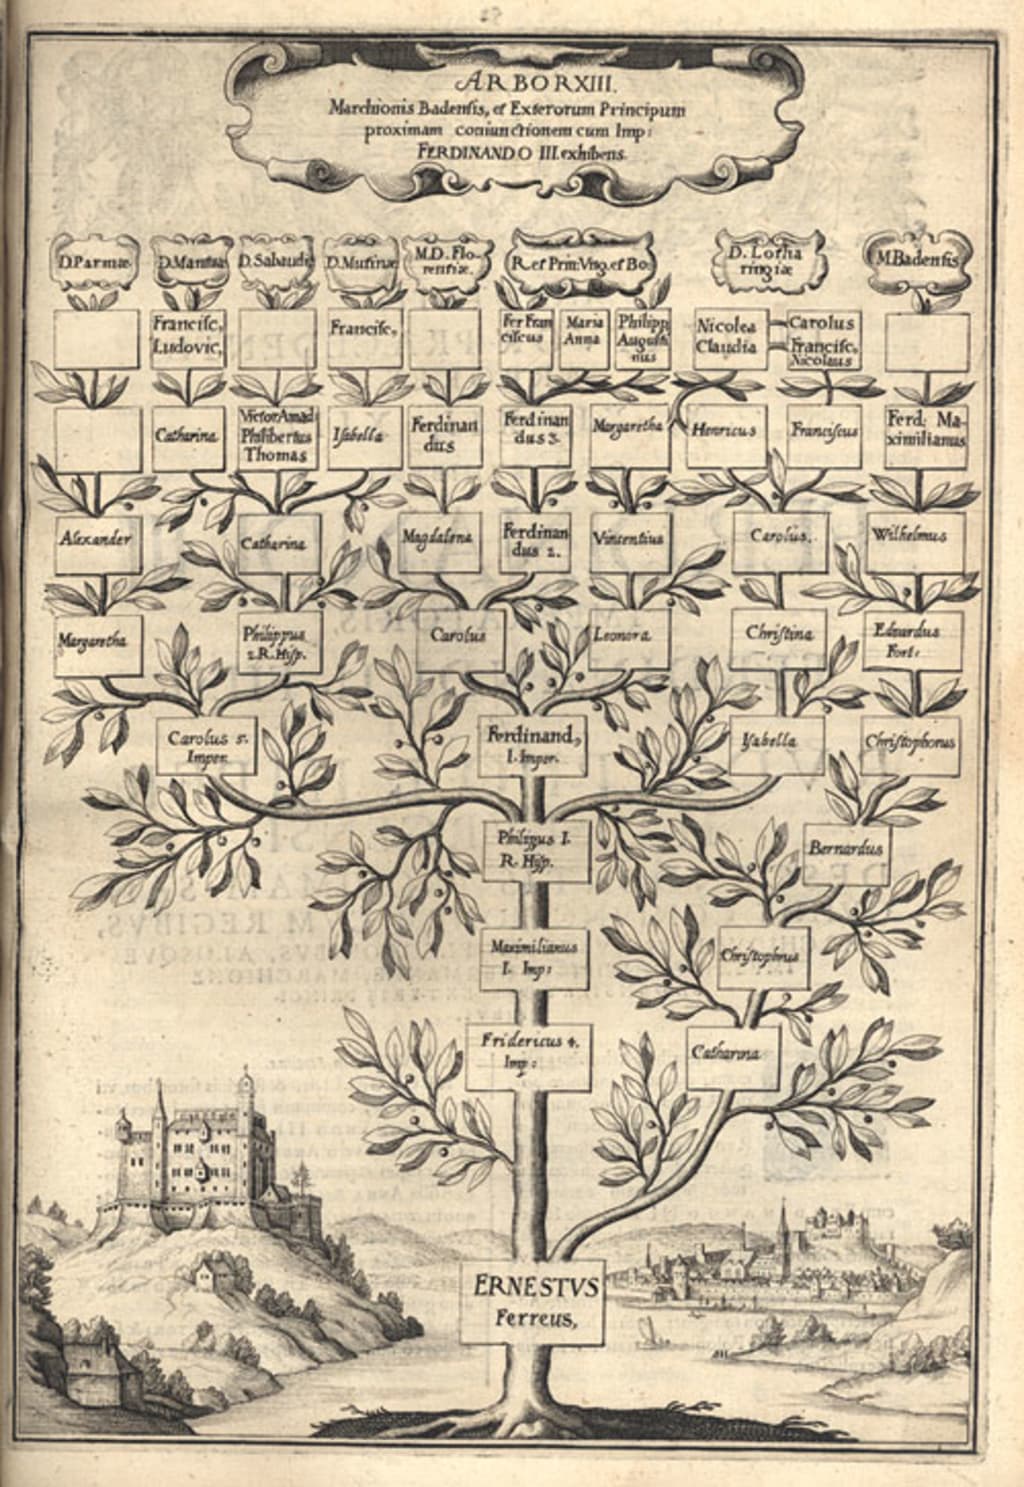 ARBOR XIII.
Marchionis Badensis, et Exterorum Principum
proximam coniunctionem cum Imp:
FERDINANDO III. exhibens.
D. Parmæ.
D. Mantuæ
D. Sabaudiæ
D. Mutinæ
M.D. Flo-
rentiæ.
R. et Prin: Vng. et Bo:
D. Lotha
ringiæ
M. Badensis
Francisc,
Ludovic,
Francisc,
Fer Fran
ciscus
Maria
Anna
Philipp
Augusti
nus
Nicolea
Claudia
Carolus
Francisc,
Nicolaus
Catharina
Victor Amad:
Philibertus
Thomas
Isabella
Ferdinan
dus
Ferdinan
dus 3.
Margaretha
Henricus
Franciscus
Ferd: Ma-
ximilianus
Alexander
Catharina
Magdalena
Ferdinan
dus 2.
Vincentius
Carolus.
Wilhelmus
Margaretha
Philippus
2. R. Hisp.
Carolus
Leonora
Christina
Eduardus
Fort:
Carolus 5.
Imper.
Ferdinand,
I. Imper.
Ysabella
Christophorus
Philipus I.
R. Hisp.
Bernardus
Maximilianus
I. Imp:
Christophrus
Fridericus 4.
Imp:
Catharina
ERNESTVS
Ferreus,